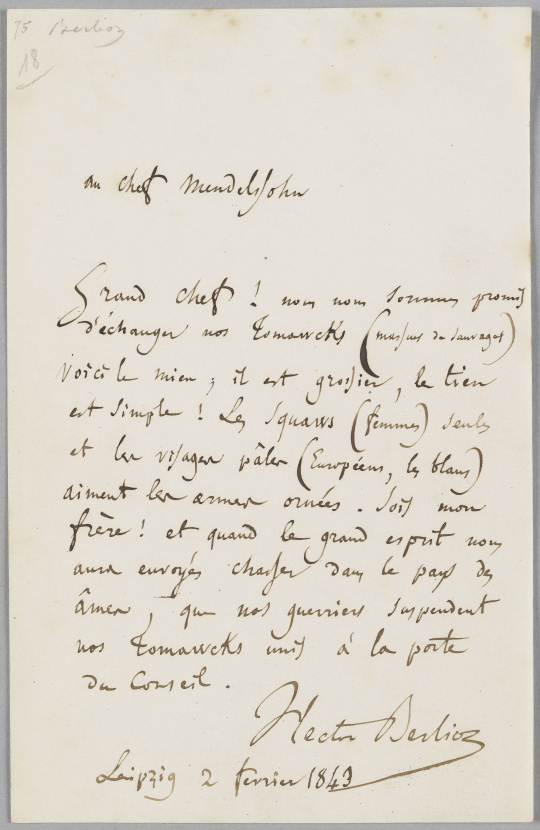 75 Berlioz
18
au chef Mendelssohn
Grand chef ! nous nous sommes promis
d'échanger nos tomawcks (massues de sauvages)
Voici le mien ; il est grossier, le tien
est simple ! Les squaws (femmes) seules
et les visages pâles (Européens, les blancs)
aiment les armes ornées. Sois mon
frère ! et quand le grand esprit nous
aura envoyés chasser dans le pays des
âmes, que nos guerriers suspendent
nos tomawcks unis à la porte
du Conseil.
Hector Berlioz
Leipzig 2 février 1843